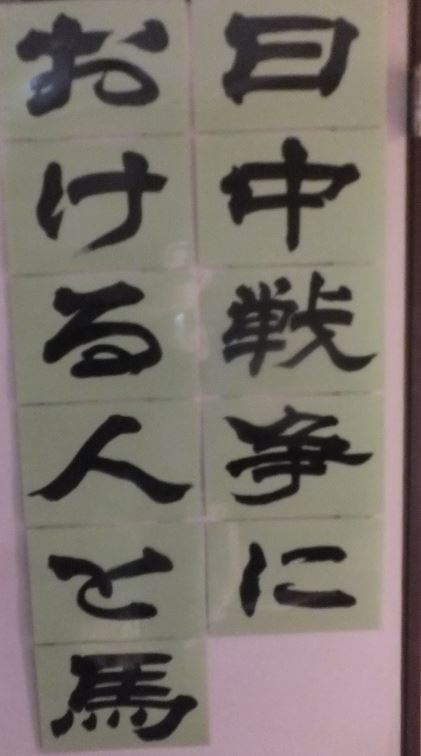 日中戦争に
おける人と馬